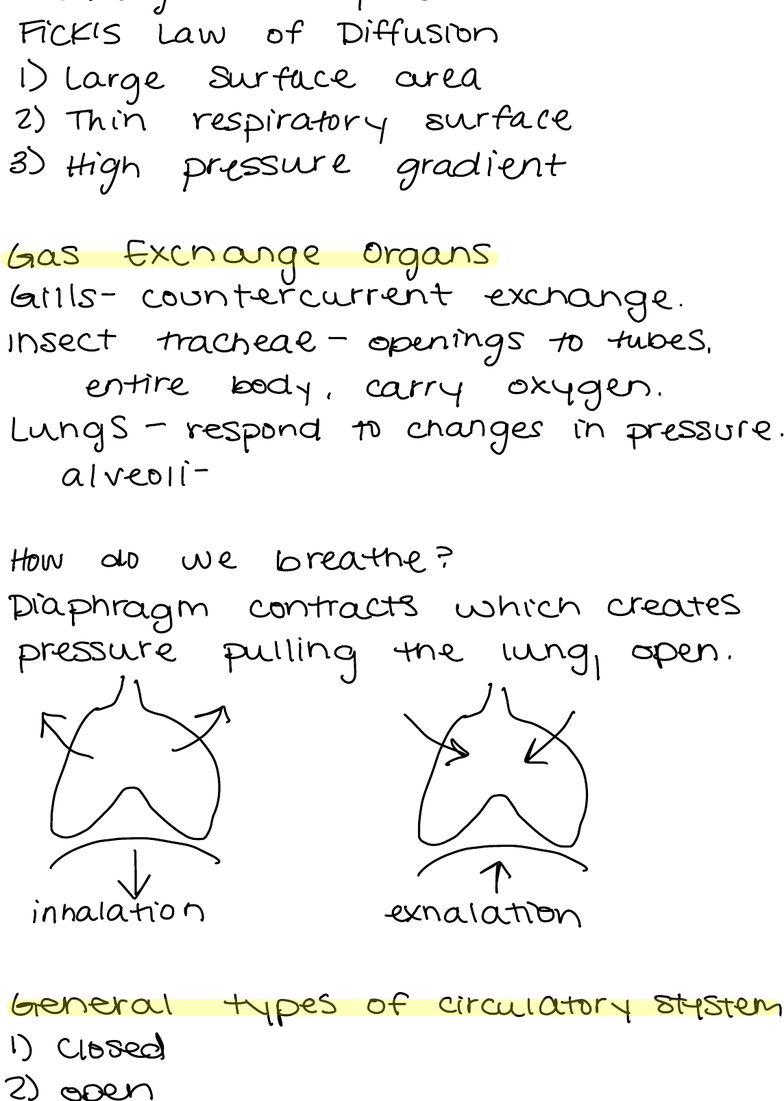 Fick's Law of Diffusion
1) Large surface area
2) Thin respiratory surface
3) High pressure gradient
Gas Exchange Organs
Gills- countercurrent exchange.
Insect tracheae - openings to tubes,
entire body, carry oxygen.
Lungs - respond to changes in pressure.
alveoli-
How do we breathe?
Diaphragm contracts which creates
pressure pulling the lung, open.
inhalation
exhalation
General types of circulatory system
1) Closed
2) open